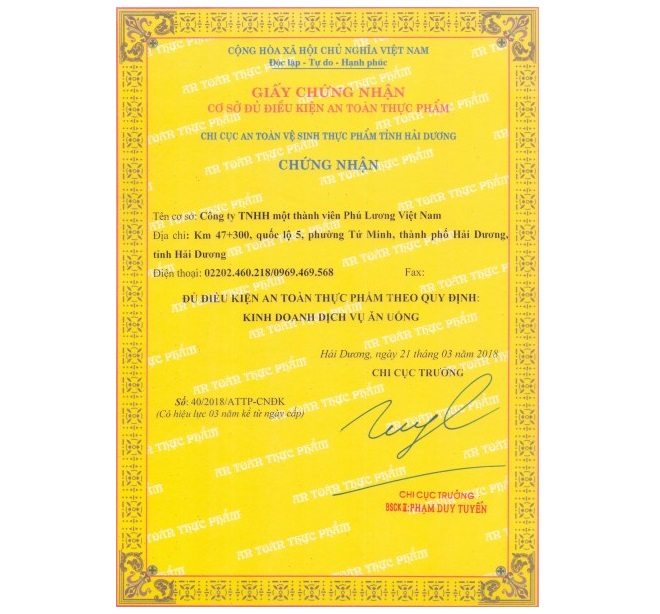 CỘNG HÒA XÃ HỘI CHỦ NGHĨA VIỆT NAM
Độc lập - Tự do - Hạnh phúc
GIẤY CHỨNG NHẬN
CƠ SỞ ĐỦ ĐIỀU KIỆN AN TOÀN THỰC PHẨM
CHI CỤC AN TOÀN VỆ SINH THỰC PHẨM TỈNH HẢI DƯƠNG
CHỨNG NHẬN
Tên cơ sở: Công ty TNHH một thành viên Phú Lương Việt Nam
Địa chỉ: Km 47+300, quốc lộ 5, phường Tứ Minh, thành phố Hải Dương,
tỉnh Hải Dương
Điện thoại: 02202.460.218/0969.469.568 Fax:
ĐỦ ĐIỀU KIỆN AN TOÀN THỰC PHẨM THEO QUY ĐỊNH:
KINH DOANH DỊCH VỤ ĂN UỐNG
Hải Dương, ngày 21 tháng 03 năm 2018
CHI CỤC TRƯỞNG
Số: 40/2018/ATTP-CNĐK
(Có hiệu lực 03 năm kể từ ngày cấp)
CHI CỤC TRƯỞNG
BSCK II: PHẠM DUY TUYẾN